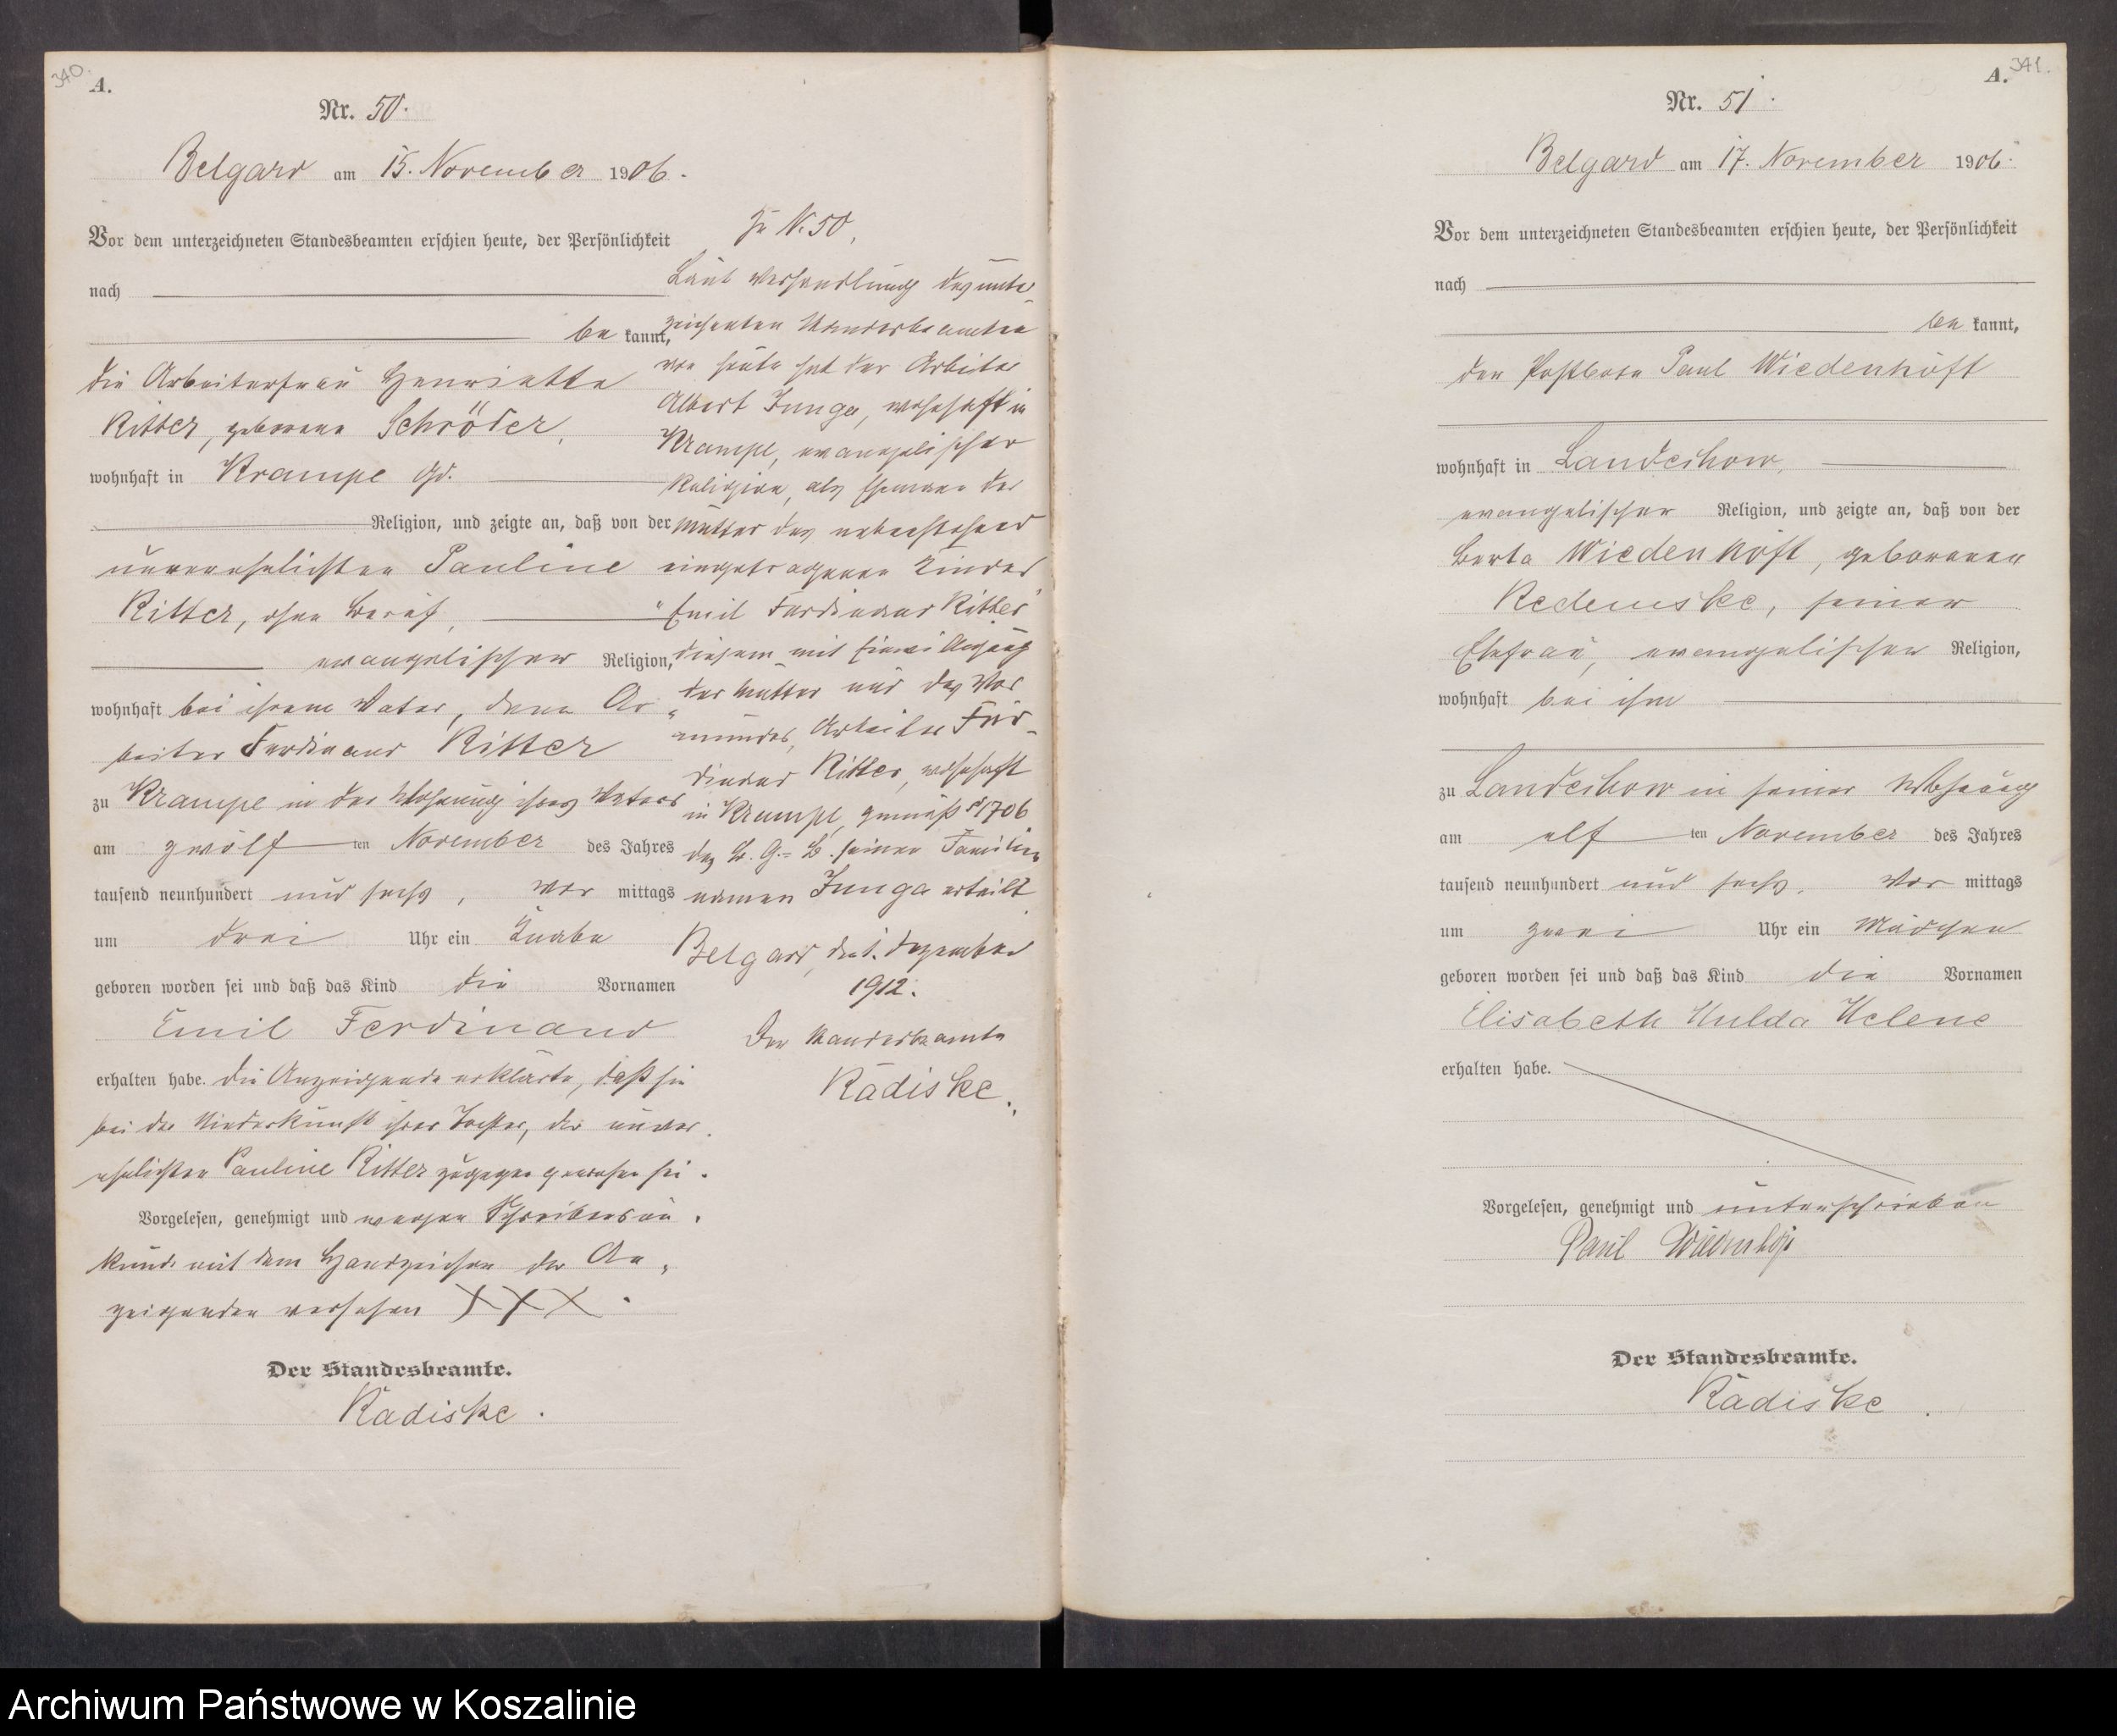 340.
A.
Nr. 50.
Belgard am 15. November 1906.
Vor dem unterzeichneten Standesbeamten erschien heute, der Persönlichkeit
nach
be kannt,
die Arbeiterfrau Henriette
Ritter, geborene Schröder,
wohnhaft in Krampe Gd.
Religion, und zeigte an, daß von der
unverehelichten Pauline
Ritter, ohne Beruf,
evangelischer Religion,
wohnhaft bei ihrem Vater, dem Ar
beiter Ferdinand Ritter
zu Krampe in der Wohnung ihres Vaters
am zwölf ten November des Jahres
tausend neunhundert und sechs, vor mittags
um drei Uhr ein Knabe
geboren worden sei und daß das Kind die Vornamen
Emil Ferdinand
erhalten habe. Die Anzeigende erklärte, daß sie
bei der Niederkunft ihrer Tochter, der unver
ehelichten Pauline Ritter zugegen gewesen sei.
Vorgelesen, genehmigt und wegen Schreibensun
kunde mit dem Handzeichen der An
zeigenden versehen XXX.
Der Standesbeamte.
Radiske.
Zu N. 50,
Laut Verhandlung des unter
zeichneten Standesbeamten
von heute hat der Arbeiter
Albert Junga, wohnhaft in
Krampe, evangelischer
Religion, als Ehemann der
Mutter des nebenstehend
eingetragenen Kindes
"Emil Ferdinand Ritter"
diesem mit Einwilligung
der Mutter und des Vor
mundes, Arbeiter Fer-
dinand Ritter, wohnhaft
in Krampe, gemäß § 1706
des B. G.-B. seinen Familien
namen Junga erteilt.
Belgard, den 1. Dezember
1912.
Der Standesbeamte
Radiske.
341.
A.
Nr. 51.
Belgard am 17. November 1906.
Vor dem unterzeichneten Standesbeamten erschien heute, der Persönlichkeit
nach
be kannt,
der Postbote Paul Wiedenhöft
wohnhaft in Landechow,
evangelischer Religion, und zeigte an, daß von der
Berta Wiedenhöft, geborenen
Redemske, seiner
Ehefrau, evangelischer Religion,
wohnhaft bei ihm
zu Landechow in seiner Wohnung
am elf ten November des Jahres
tausend neunhundert und sechs, Vor mittags
um zwei Uhr ein Mädchen
geboren worden sei und daß das Kind die Vornamen
Elisabeth Hulda Helene
erhalten habe.
Vorgelesen, genehmigt und unterschrieben
Paul Wiedenhöft
Der Standesbeamte.
Radiske.
Archiwum Państwowe w Koszalinie